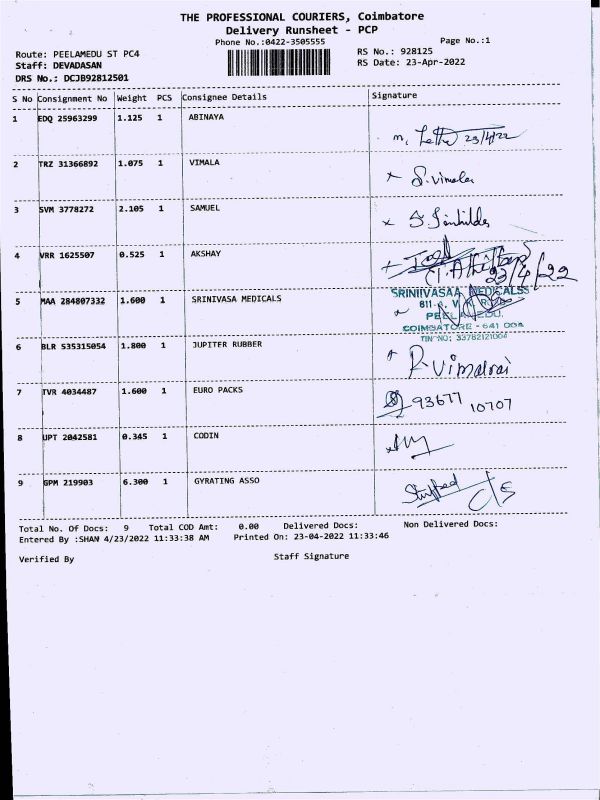 THE PROFESSIONAL COURIERS, Coimbatore
Delivery Runsheet - PCP
Phone No.:0422-3505555 Page No.:1
Route: PEELAMEDU ST PC4 RS No.: 928125
Staff: DEVADASAN RS Date: 23-Apr-2022
DRS No.: DCJB92812501
S No Consignment No Weight PCS Consignee Details Signature
1 EDQ 25963299 1.125 1 ABINAYA
23/4/22
2 TRZ 31366892 1.075 1 VIMALA
S. Vimala
3 SVM 3778272 2.105 1 SAMUEL
4 VRR 1625507 0.525 1 AKSHAY
23/4/22
5 MAA 284807332 1.600 1 SRINIVASA MEDICALS
SRINIIVASAA MEDICALSS
811-
PEELAMEDU.
COIMBATORE - 641 004
TIN NO: 33782121004
6 BLR 535315054 1.800 1 JUPITER RUBBER
R. Vimalraj
7 TVR 4034487 1.600 1 EURO PACKS
93677 10707
8 UPT 2042581 0.345 1 CODIN
9 GPM 219903 6.300 1 GYRATING ASSO
Total No. Of Docs: 9 Total COD Amt: 0.00 Delivered Docs: Non Delivered Docs:
Entered By :SHAN 4/23/2022 11:33:38 AM Printed On: 23-04-2022 11:33:46
Verified By Staff Signature